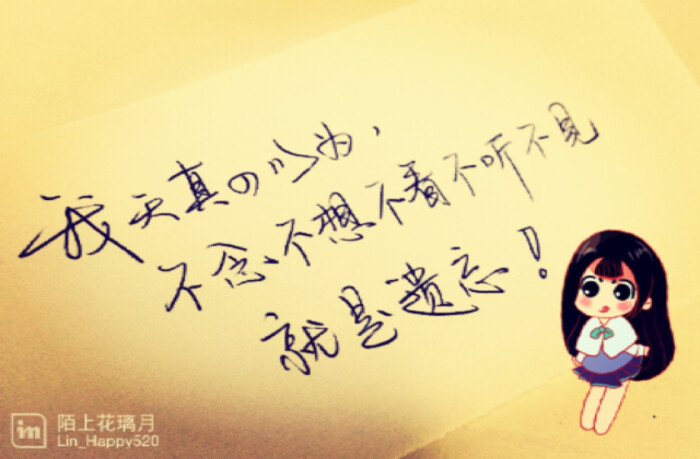 我天真的以为,
不念、不想不看不听不见
就是遗忘!
in
陌上花璃月
Lin_Happy520